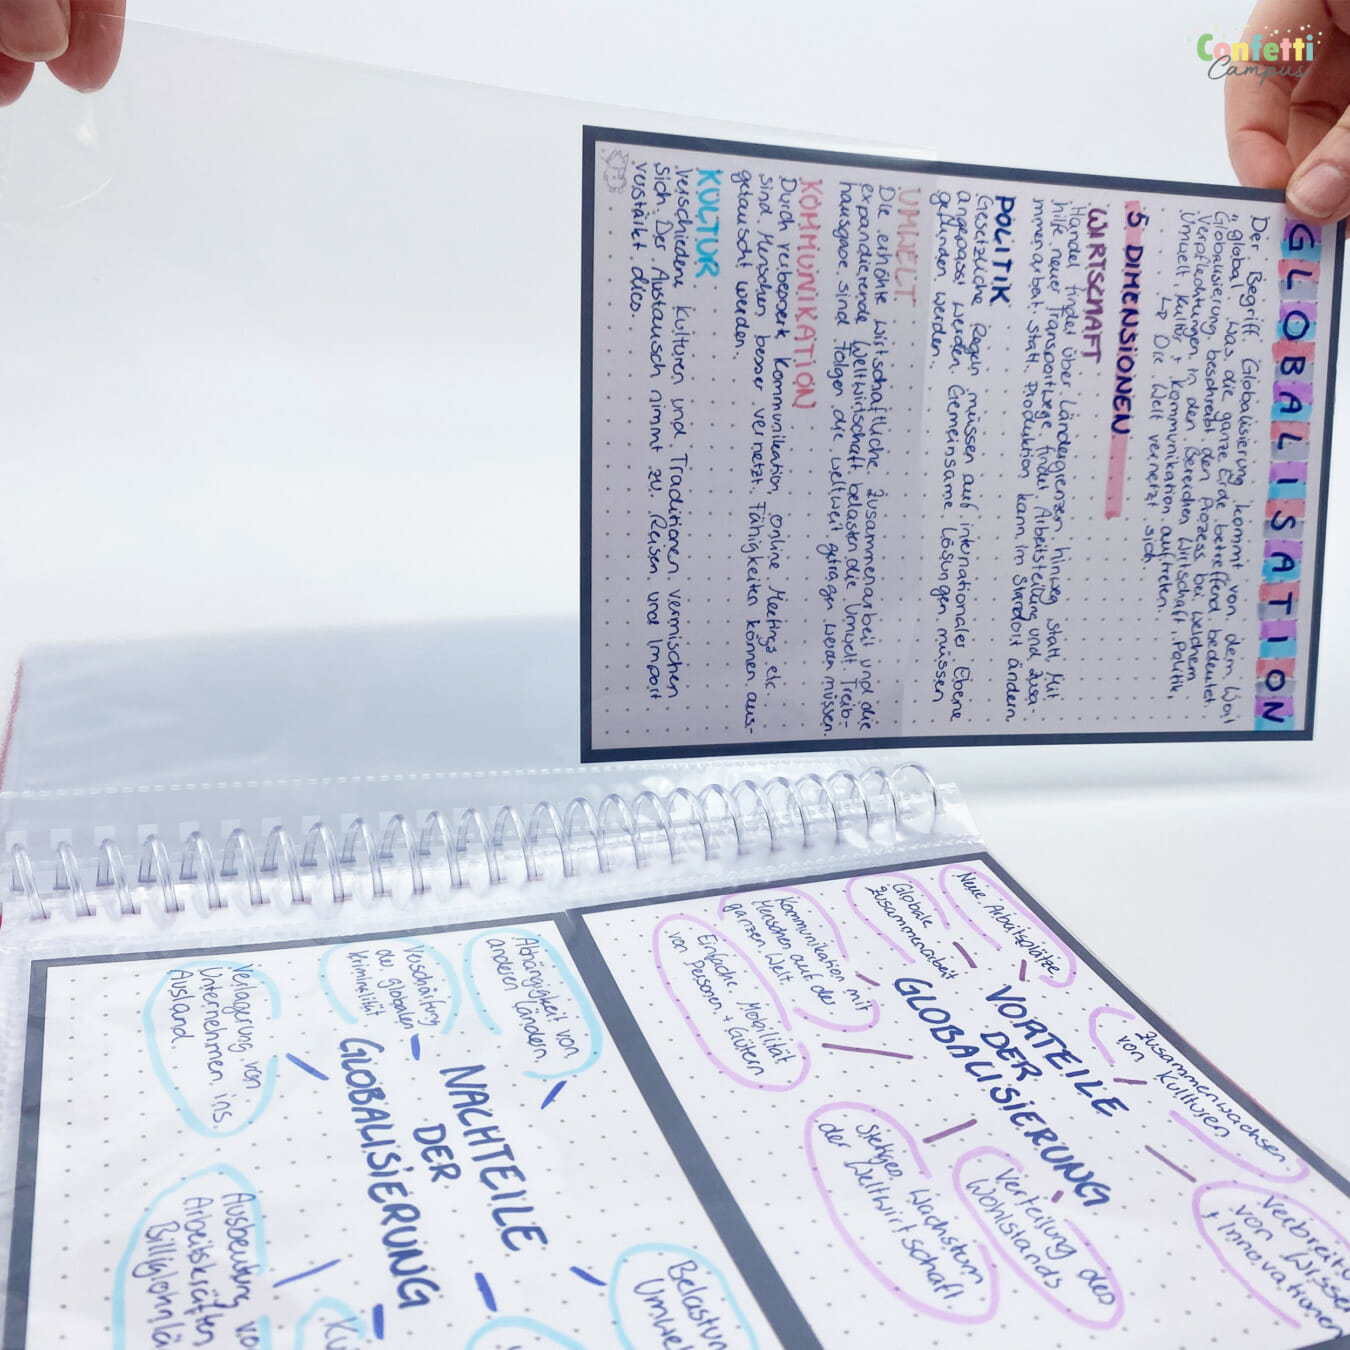 Confetti
Campus
GLOBALISATION
Der Begriff Globalisierung kommt von dem Wort
"global" was die ganze Erde betreffend bedeutet.
Globalisierung beschreibt den Prozess bei welchem
Verpflechtungen in den Bereichen Wirtschaft, Politik,
Umwelt, Kultur + Kommunikation auftreten.
↳ Die Welt vernetzt sich
5 DIMENSIONEN
WIRTSCHAFT
Handel findet über Ländergrenzen hinweg statt. Mit
hilfe neuer Transportwege findet Arbeitsteilung und Zusa-
mmenarbeit statt. Produktion kann im Standort ändern.
POLITIK
Gesetzliche Regeln müssen auf internationaler Ebene
angepasst werden. Gemeinsame Lösungen müssen
gefunden werden.
UMWELT
Die erhöhte wirtschaftliche Zusammenarbeit und die
expandierende Weltwirtschaft belasten die Umwelt. Treib-
hausgase sind Folgen die weltweit getragen werden müssen.
KOMMUNIKATION
Durch verbesserte Kommunikation, online Meetings etc.
sind Menschen besser vernetzt. Fähigkeiten können aus-
getauscht werden.
KULTUR
Verschiedene Kulturen und Traditionen vermischen
sich. Der Austausch nimmt zu. Reisen und Import
verstärkt dies.
VORTEILE
DER
GLOBALISIERUNG
Neue Arbeitsplätze
Globale
Zusammenarbeit
Kommunikation mit
Menschen auf der
ganzen Welt.
Einfache Mobilität
von Personen + Gütern
Zusammenwachsen
von Kulturen
Verbreitu
von Wisse
+ Innovationen
Verteilung des
Wohlstands
Stetiges Wachstum
der Weltwirtschaft
NACHTEILE
DER
GLOBALISIERUNG
Abhängigkeit von
anderen Ländern
Verschärfung
der globalen
Kriminalität
Verlagerung von
Unternehmen ins
Ausland
Ausbeutung vo
Arbeitskräften
Billiglohnlä
Belastun
Umwel
Ku